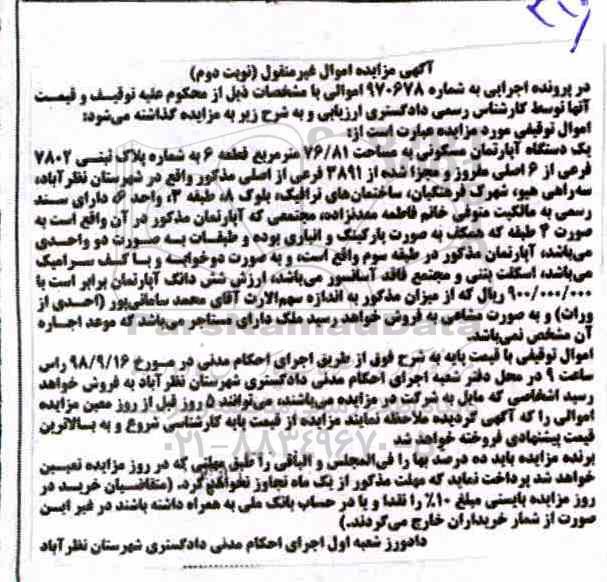 آگهی مزایده اموال غیرمنقول (نوبت دوم)
در پرونده اجرایی به شماره ۹۷۰۶۷۸ اموالی با مشخصات ذیل از محکوم علیه توقیف و قیمت
آنها توسط کارشناس رسمی دادگستری ارزیابی و به شرح زیر به مزایده گذاشته می‌شود:
اموال توقیفی مورد مزایده عبارت است از:
یک دستگاه آپارتمان مسکونی به مساحت ۷۶/۸۱ مترمربع قطعه ۶ به شماره پلاک ثبتی ۷۸۰۲
فرعی از ۶ اصلی مفروز و مجزا شده از ۳۸۹۱ فرعی از اصلی مذکور واقع در شهرستان نظرآباد،
سه‌راهی هیو، شهرک فرهنگیان، ساختمان‌های ترافیک، بلوک ۸، طبقه ۳، واحد ۶، دارای سند
رسمی به مالکیت متوفی خانم فاطمه معدنزاده، مجتمعی که آپارتمان مذکور در آن واقع است به
صورت ۴ طبقه که همکف به صورت پارکینگ و انباری بوده و طبقات به صورت دو واحدی
می‌باشد، آپارتمان مذکور در طبقه سوم واقع است، و به صورت دوخوابه و با کف سرامیک
می‌باشد، اسکلت بتنی و مجتمع فاقد آسانسور می‌باشد، ارزش شش دانگ آپارتمان برابر است با
۹۰۰/۰۰۰/۰۰۰ ریال که از میزان مذکور به اندازه سهم‌الارث آقای محمد سامانی‌پور (احدی از
وراث) و به صورت مشاعی به فروش خواهد رسید ملک دارای مستاجر می‌باشد که موعد اجاره
آن مشخص نمی‌باشد.
اموال توقیفی با قیمت پایه به شرح فوق از طریق اجرای احکام مدنی در مورخ ۹۸/۹/۱۶ راس
ساعت ۹ در محل دفتر شعبه اجرای احکام مدنی دادگستری شهرستان نظرآباد به فروش خواهد
رسید اشخاصی که مایل به شرکت در مزایده می‌باشند، می‌توانند ۵ روز قبل از روز معین مزایده
اموالی را که آگهی گردیده ملاحظه نمایند مزایده از قیمت پایه کارشناسی شروع و به بالاترین
قیمت پیشنهادی فروخته خواهد شد
برنده مزایده باید ده درصد بها را فی‌المجلس و الباقی را طبق مهلتی که در روز مزایده تعیین
خواهد شد پرداخت نماید که مهلت مذکور از یک ماه تجاوز نخواهد کرد. (متقاضیان خرید در
روز مزایده بایستی مبلغ ۱۰٪ را نقدا و یا در حساب بانک ملی به همراه داشته باشند در غیر این
صورت از شمار خریداران خارج می‌گردند.)
دادورز شعبه اول اجرای احکام مدنی دادگستری شهرستان نظرآباد
ParsNamadData
۰۲۱-۸۸۳۴۹۶۷۰